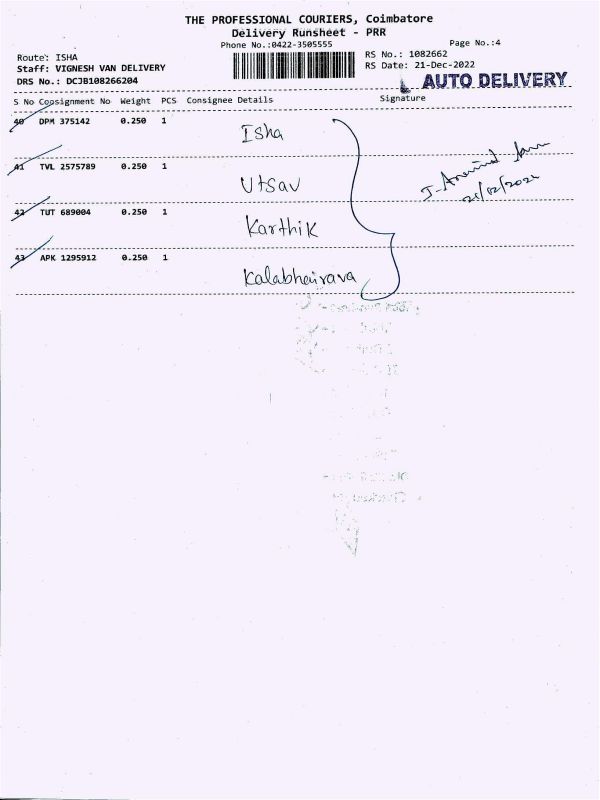 THE PROFESSIONAL COURIERS, Coimbatore
Delivery Runsheet - PRR
Phone No.:0422-3505555
Page No.:4
Route: ISHA
RS No.: 1082662
Staff: VIGNESH VAN DELIVERY
RS Date: 21-Dec-2022
DRS No.: DCJB108266204
AUTO DELIVERY
S No Consignment No Weight PCS Consignee Details Signature
40 DPM 375142 0.250 1
Isha
41 TVL 2575789 0.250 1
Utsav
42 TUT 689004 0.250 1
Karthik
43 APK 1295912 0.250 1
Kalabhairava
21/12/2022